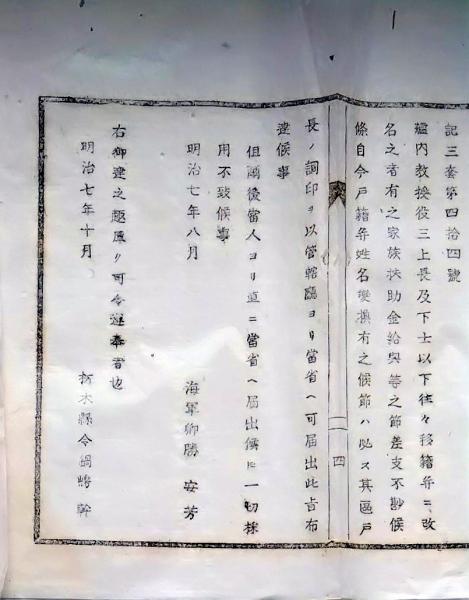 記三套第四拾四號
艦內教授役三上長及下士以下往々移籍并ニ改
名之者有之家族扶助金給與等之節差支不尠候
條自今戸籍并姓名變換有之候節ハ必ス其區戸
四
長ノ調印ヲ以管轄廳ヨリ當省ヘ可届出此旨布
達候事
但爾後當人ヨリ直ニ當省ヘ届出候トモ一切採
用不致候事
明治七年八月
海軍卿勝安芳
右御達之趣厚ク可令遵奉者也
明治七年十月
栃木縣令鍋嶋幹